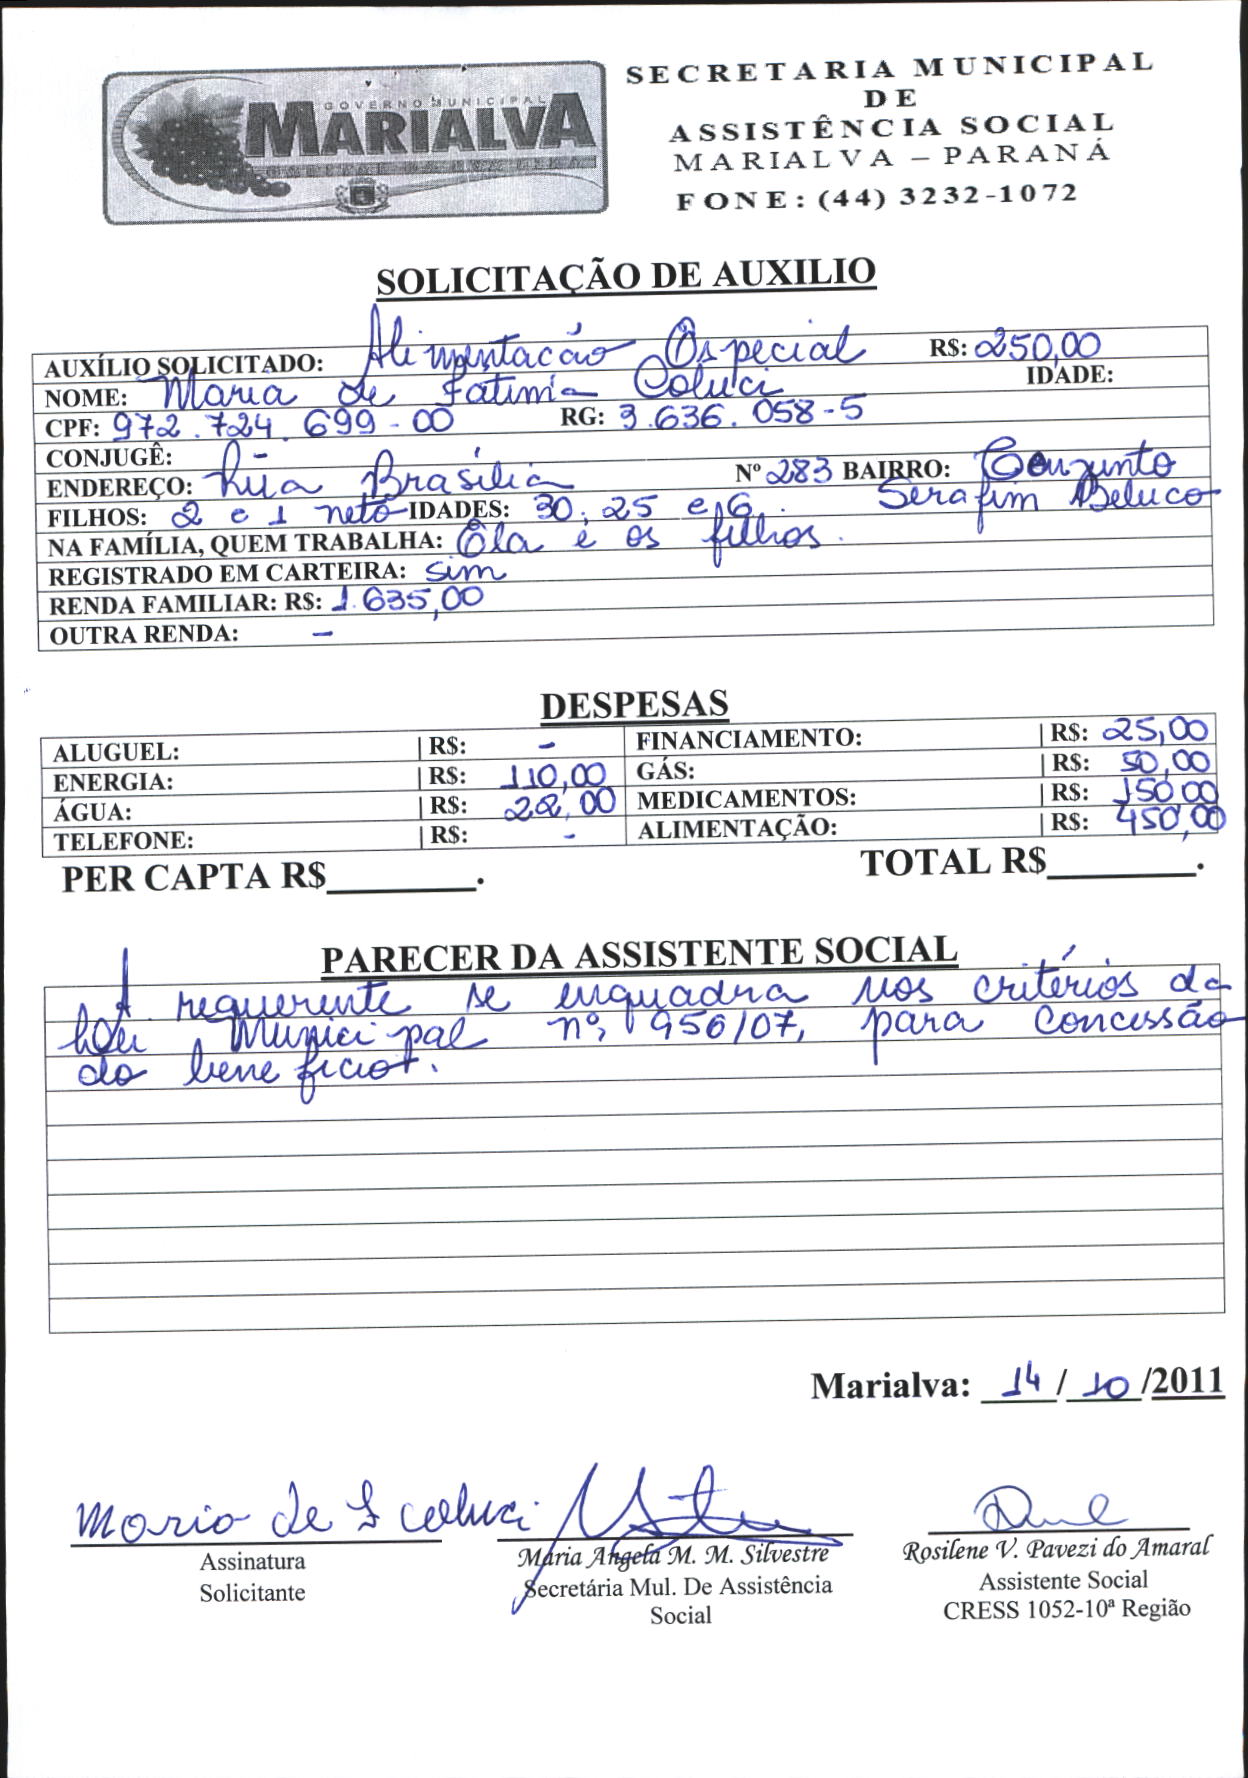 GOVERNO MUNICIPAL
MARIALVA
SECRETARIA MUNICIPAL
DE
ASSISTÊNCIA SOCIAL
MARIALVA – PARANÁ
FONE: (44) 3232-1072
SOLICITAÇÃO DE AUXILIO
AUXÍLIO SOLICITADO: Alimentacão Especial R$: 250,00
NOME: Maria de Fatima Coluci IDADE:
CPF: 972.724.699-00 RG: 3.636.058-5
CONJUGÊ: -
ENDEREÇO: Rua Brasília Nº 283 BAIRRO: Conjunto Serafim Beluco
FILHOS: 2 e 1 neto IDADES: 30, 25 e 6.
NA FAMÍLIA, QUEM TRABALHA: Ela e os filhos.
REGISTRADO EM CARTEIRA: sim
RENDA FAMILIAR: R$: 1.635,00
OUTRA RENDA: -
DESPESAS
ALUGUEL: | R$: - FINANCIAMENTO: | R$: 25,00
ENERGIA: | R$: 110,00 GÁS: | R$: 50,00
ÁGUA: | R$: 22,00 MEDICAMENTOS: | R$: 150,00
TELEFONE: | R$: - ALIMENTAÇÃO: | R$: 450,00
PER CAPTA R$________. TOTAL R$________.
PARECER DA ASSISTENTE SOCIAL
A requerente se enquadra nos critérios da
Lei Municipal nº, 956/07, para concessão
do benefício.
Marialva: 14/10/2011
Maria de F Coluci
Assinatura
Solicitante
Maria Angela M. M. Silvestre
Secretária Mul. De Assistência
Social
Rosilene V. Pavezi do Amaral
Assistente Social
CRESS 1052-10ª Região